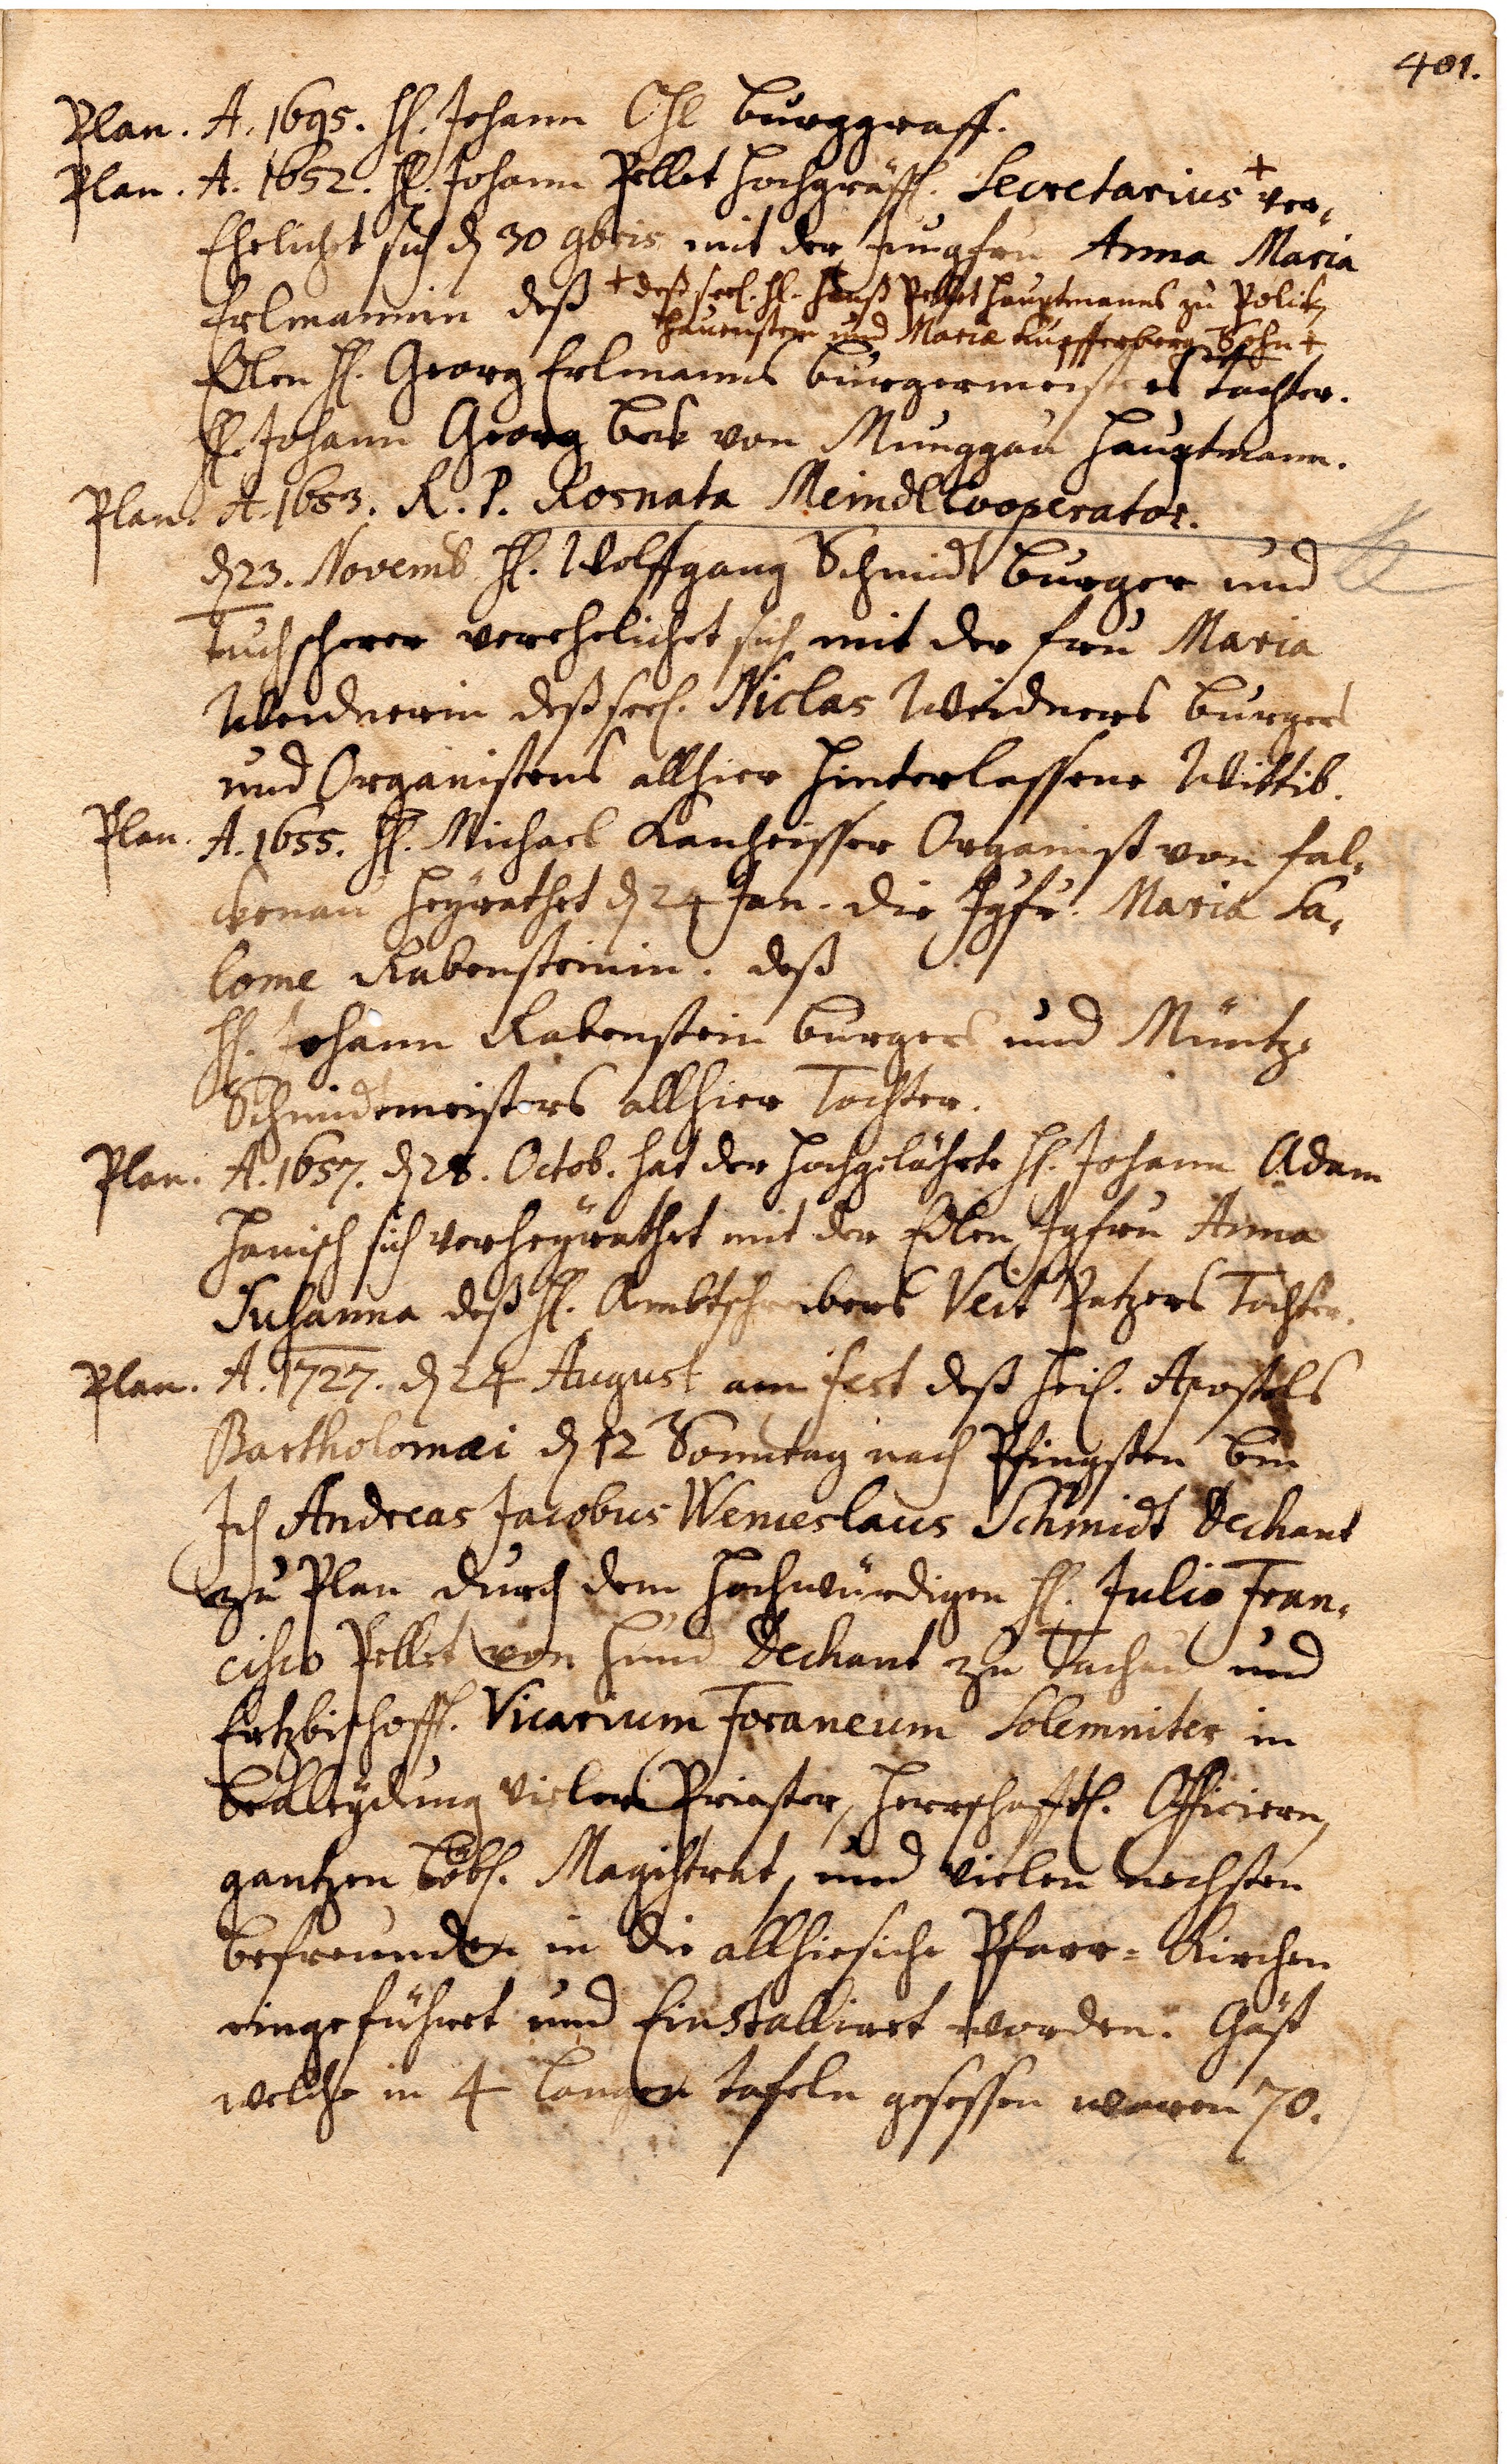 401.
Plan. A. 1695. H. Johann Ohl Burggraff.
Plan. A. 1652. H. Johann Pellet Hochgräffl. Secretarius + ver,
Ehelichet sich d 30 9bris mit der Jungfru Anna Maria
Erlmannin deß + deß seel. H. Hanß Pellet Hauptmanns zu Politz,
Hauenstein und Maria Kupfferberg Sohn +
Edlen H. Georg Erlmanns Burgermeisters Tochter.
H. Johann Georg Beck von Munggau Hauptmann.
Plan. A. 1653. R. P. Rosnata Meindl Cooperator.
d 23. Novemb H. Wolffgang Schmidt Burger und
tuchscherer verehelichet sich mit der fru Maria
Weidnerin deß seel. Niclas Weidners Burgers
und Organistens allhier hinterlassene Wittib.
Plan. A. 1655. H. Michael Kanheisser Organist von Fal,
ckenau heyrathet d 24 Jan. die Jgfr. Maria Sa,
lome Rabensteinin. deß
H. Johann Rabenstein Burgers und Müntz,
Schmidtmeisters allhier Tochter.
Plan. A. 1657. d 28. Octob. hat der Hochgelährte H. Johann Adam
Hanisch sich verheyrathet mit der Edlen Jgfru Anna
Susanna deß H. Ambtschreibers Veit Patzers Tochter.
Plan. A. 1727. d 24 August am fest deß Heil. Apostels
Bartholomæi d 12 Sonntag nach Pfingsten bin
Ich Andreas Jacobus Wenceslaus Schmidt Dechant
zu Plan durch dem Hochwürdigen H. Julio Fran,
cisco Pellet von Hund Dechant zu Tachau und
Ertzbischoffl. Vicarium Foraneum Solemniter in
Begleydung vieler Priester, Herrschafftl. Officiern,
gantzen Löbl. Magistrat, und vielen nechsten
befreunden in die allhiesiche Pfarr-Kirchen
eingeführet und Einstalliret worden. Gäst
welche in 4 langen tafeln gesessen waren 70.